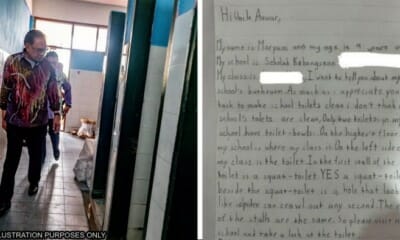 ILLUSTRATION PURPOSES ONLY
Hi Uncle Anwar,
My name is Maryam and my age is 9 years
My school is Sekolah Kebangsaan
My class is . I want to tell you about my
school's bathroom. As much as I appreciate you
task to make school toilets clean I don't think
school's toilets are clean. Only two toilets in my
school have toilet-bowls. On the highest floor
my school is where my class is. On the left side
my class is the toilet. In the first stall of the
toilet is a squat-toilet YES a squat-toilet
beside the squat-toilet is a hole that looks
like spider can crawl out any second. The
of the stalls are the same. So please visit
school and take a look at the toilet